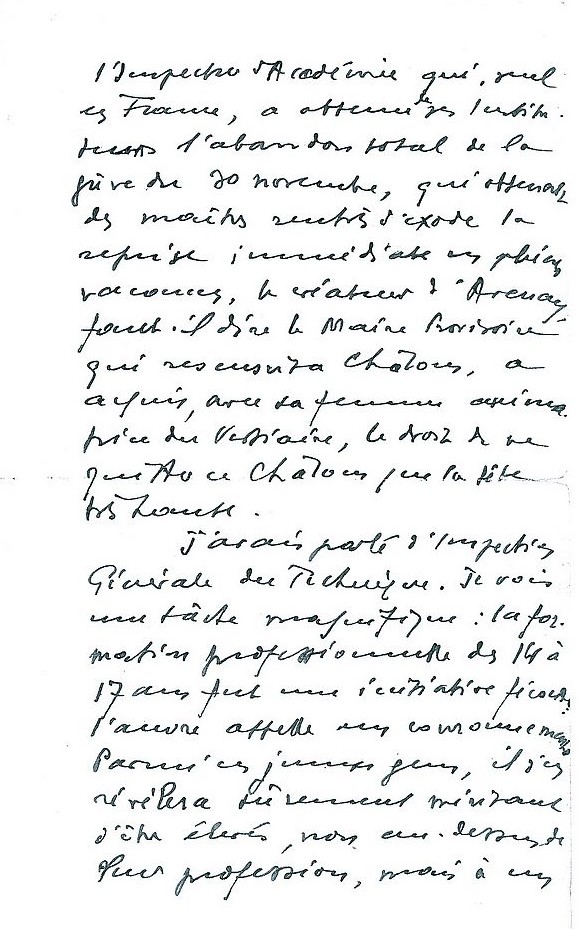 l'Inspecteur d'Académie qui, seul
en France, a obtenu de ses Institu-
teurs l'abandon total de la
grève du 30 novembre, qui obtenait
des maîtres rentrés d'exode la
reprise immédiate en pleines
vacances, le créateur d'
faut-il dire le Maire Provisoire
qui ressuscita Châlons, a
acquis, avec sa femme anima-
trice du Vestiaire, le droit de ne
quitter Châlons que la tête
très haute.
J'avais parlé d'Inspection
Générale du Technique. Je vois
une tâche magnifique : la for-
mation professionnelle des 14 à
17 ans fut une initiative féconde :
l'œuvre appelle un couronnement
Parmi ces jeunes gens, il s'en
révélera sûrement méritant
d'être élevés, non au-dessus de
leur profession, mais à un